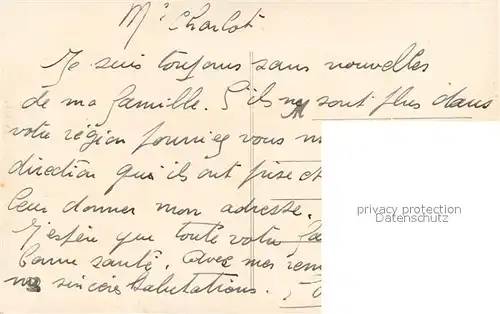 Mr Charlot
Je suis toujours sans nouvelles
de ma famille. S'ils ne sont plus dans
votre région pourriez vous m
direction qu'ils ont prise et
leur donner mon adresse.
J'espère que toute votre fa
bonne santé. Avec mes rem
mes sincères Salutations.
privacy protection